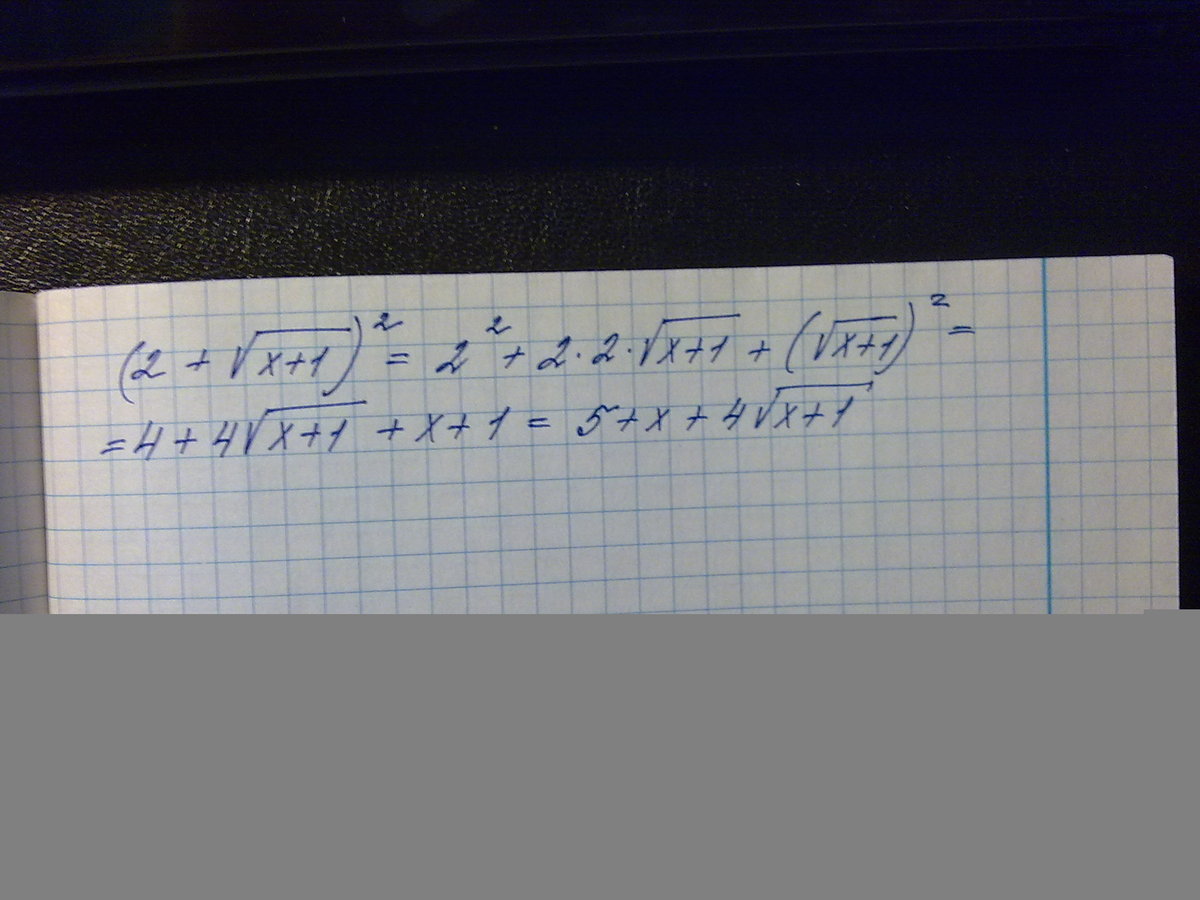 (2 + √(x+1))² = 2² + 2·2·√(x+1) + (√(x+1))² =
= 4 + 4√(x+1) + x + 1 = 5 + x + 4√(x+1)